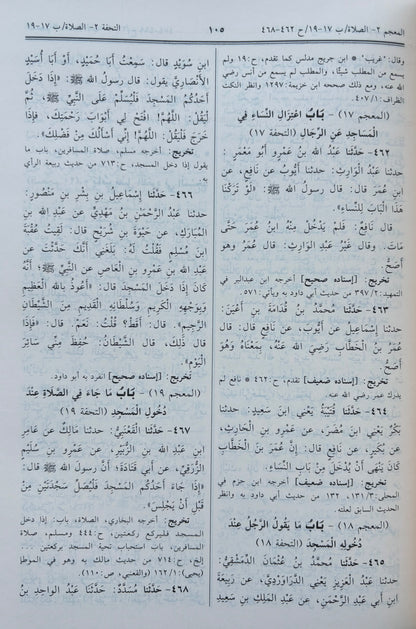 المعجم ٢- الصلاة/ب ١٧-١٩/ح ٤٦٢-٤٦٨
١٠٥
التحفة ٢- الصلاة/ب ١٧-١٩
وقال: "غريب" * ابن جريج مدلس كما تقدم، ح:١٩، ولم
يسمع من مطلب شيئًا، والمطلب لم يسمع من أنس رضي
الله عنه، ومع ذلك صححه ابن خزيمة:١٢٩٧ وانظر النكت
الظراف:٤٠٧/١.
(المعجم ١٧) - بَابُ اعْتِزَالِ النِّسَاءِ فِي
الْمَسَاجِدِ عَنِ الرِّجَالِ (التحفة ١٧)
٤٦٢- حَدَّثَنَا عَبْدُ الله بنُ عَمْرِو أَبُو مَعْمَرٍ:
حَدَّثَنَا عَبْدُ الْوَارِثِ: حدثنا أَيُّوبُ عن نَافِعٍ، عن
ابنِ عُمَرَ قال: قال رسولُ الله ﷺ: «لَوْ تَرَكْنَا
هَذَا الْبَابَ لِلنِّسَاءِ».
قال نَافِعٌ: فَلَمْ يَدْخُلْ مِنْهُ ابنُ عُمَرَ حَتَّى
مَاتَ. وقال غَيْرُ عَبْدِ الْوَارِثِ: قال عُمَرُ وهو
أَصَحُّ.
تخريج: [إسناده صحيح] أخرجه ابن عبدالبر في
التمهيد:٣٩٧/٢٣ من حديث أبي داود به ويأتي:٥٧١.
٤٦٣- حَدَّثَنا مُحَمَّدُ بنُ قُدَامَةَ بنِ أَعْيَنَ:
حدثنا إِسْمَاعِيلُ عن أَيُّوبَ، عن نَافِعٍ قال: قال
عُمَرُ بنُ الْخَطَّابِ رَضِيَ الله عَنْهُ، بِمَعْنَاهُ وَهُوَ
أَصَحُّ.
تخريج: [إسناده ضعيف] تقدم، ح:٤٦٢ * نافع لم
يدرك عمر رضي الله عنه.
٤٦٤- حَدَّثَنا قُتَيْبَةُ يَعْني ابنَ سَعِيدٍ: حدثنا
بَكْرٌ يَعْني ابنَ مُضَرَ، عن عَمْرِو بنِ الْحَارِثِ،
عن بُكَيْرٍ، عن نَافِعٍ قال: إنَّ عُمَرَ بنَ الْخَطَّابِ
كَانَ يَنْهَى أَنْ يُدْخَلَ مِنْ بَابِ النِّسَاءِ.
تخريج: [إسناده ضعيف] أخرجه ابن حزم في
المحلى:١٣١/٣، ١٣٢ من حديث أبي داود به وانظر
الحديث السابق لعلته.
(المعجم ١٨) - بَابُ مَا يَقُولُ الرَّجُلُ عِنْدَ
دُخُولِهِ الْمَسْجِدَ (التحفة ١٨)
٤٦٥- حَدَّثَنَا مُحَمَّدُ بنُ عُثْمانَ الدِّمَشْقِيُّ:
حَدَّثنا عَبْدُ الْعَزِيزِ يَعْنِي الدَّرَاوَرْدِيَّ، عن رَبِيعَةَ
ابنِ أَبِي عَبْدِ الرَّحْمَنِ، عن عَبْدِ المَلِكِ بنِ سَعِيدِ
ابنِ سُوَيْدٍ قال: سَمِعْتُ أَبَا حُمَيْدٍ، أَوْ أَبَا أُسَيْدٍ
الأَنْصَارِيَّ يقول: قال رسولُ الله ﷺ: «إِذَا دَخَلَ
أَحَدُكُم الْمَسْجِدَ فَلْيُسَلِّمْ عَلَى النَّبِيِّ ﷺ، ثُمَّ
لْيَقُلْ: اللَّهُمَّ! افْتَحْ لِي أَبْوَابَ رَحْمَتِكَ، فَإِذَا
خَرَجَ فَلْيَقُلْ: اللَّهُمَّ! إِنِّي أَسْأَلُكَ مِنْ فَضْلِكَ».
تخريج: أخرجه مسلم، صلاة المسافرين، باب ما
يقول إذا دخل المسجد، ح:٧١٣ من حديث ربيعة الرأي
به.
٤٦٦- حَدَّثَنا إِسْمَاعِيلُ بنُ بِشْرِ بنِ مَنْصُورٍ:
حدثنا عَبْدُ الرَّحْمَنِ بنُ مَهْدِيٍّ عن عَبْدِ الله بنِ
المُبَارَكِ، عن حَيْوَةَ بنِ شُرَيْحٍ قال: لَقِيتُ عُقْبَةَ
ابنَ مُسْلِمٍ فَقُلْتُ لَهُ: بَلَغَنِي أَنَّكَ حَدَّثْتَ عن
عَبْدِ الله بنِ عَمْرِو بنِ الْعَاصِ عن النَّبيِّ ﷺ: أَنَّهُ
كَانَ إِذَا دَخَلَ الْمَسْجِدَ قال: «أَعُوذُ بِالله الْعَظِيمِ
وَبِوَجْهِهِ الْكَرِيمِ وَسُلْطَانِهِ الْقَدِيمِ مِنَ الشَّيْطَانِ
الرَّجِيمِ». قال: أَقَطْ؟ قُلْتُ: نَعَمْ. قال: «فَإِذَا
قال ذَلِكَ، قال الشَّيْطَانُ: حُفِظَ مِنِّي سَائِرَ
الْيَوْمِ».
تخريج: [إسناده صحيح] انفرد به أبو داود.
(المعجم ١٩) - بَابُ مَا جَاءَ فِي الصَّلَاةِ عِنْدَ
دُخُولِ الْمَسْجِدِ (التحفة ١٩)
٤٦٧- حَدَّثَنَا الْقَعْنَبِيُّ: حدثنا مَالِكٌ عن عَامِرِ
ابنِ عَبْدِ الله بنِ الزُّبَيْرِ، عن عَمْرِو بنِ سُلَيْمٍ
الزُّرَقِيِّ، عن أَبِي قَتَادَةَ؛ أَنَّ رسولَ الله ﷺ قال:
«إِذَا جَاءَ أَحَدُكُم الْمَسْجِدَ فَلْيُصَلِّ سَجْدَتَيْنِ مِنْ
قَبْلِ أَنْ يَجْلِسَ».
تخريج: أخرجه البخاري، الصلاة، باب: إذا دخل
المسجد فليركع ركعتين، ح:٤٤٤، ومسلم، صلاة
المسافرين، باب استحباب تحية المسجد بركعتين . . .
إلخ، ح:٧١٤ من حديث مالك به وهو في الموطأ
(يحيى):١٦٢/١ (والقعنبي، ص:١١٠).
٤٦٨- حَدَّثَنا مُسَدَّدٌ: حَدَّثَنَا عَبْدُ الْوَاحِدِ بنُ